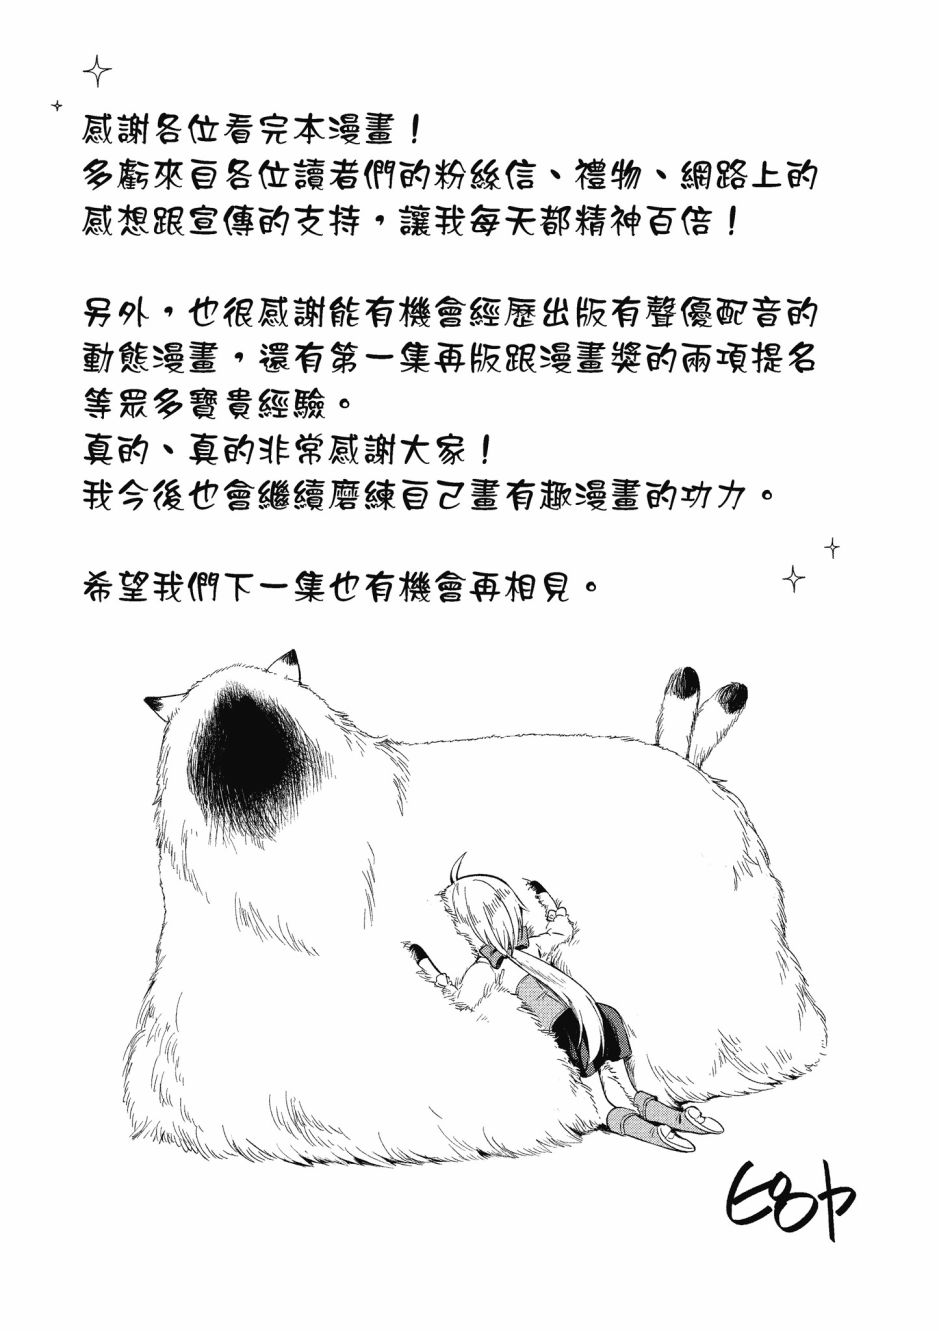 感謝各位看完本漫畫！
多虧來自各位讀者們的粉絲信、禮物、網路上的
感想跟宣傳的支持，讓我每天都精神百倍！
另外，也很感謝能有機會經歷出版有聲優配音的
動態漫畫，還有第一集再版跟漫畫獎的兩項提名
等眾多寶貴經驗。
真的、真的非常感謝大家！
我今後也會繼續磨練自己畫有趣漫畫的功力。
希望我們下一集也有機會再相見。